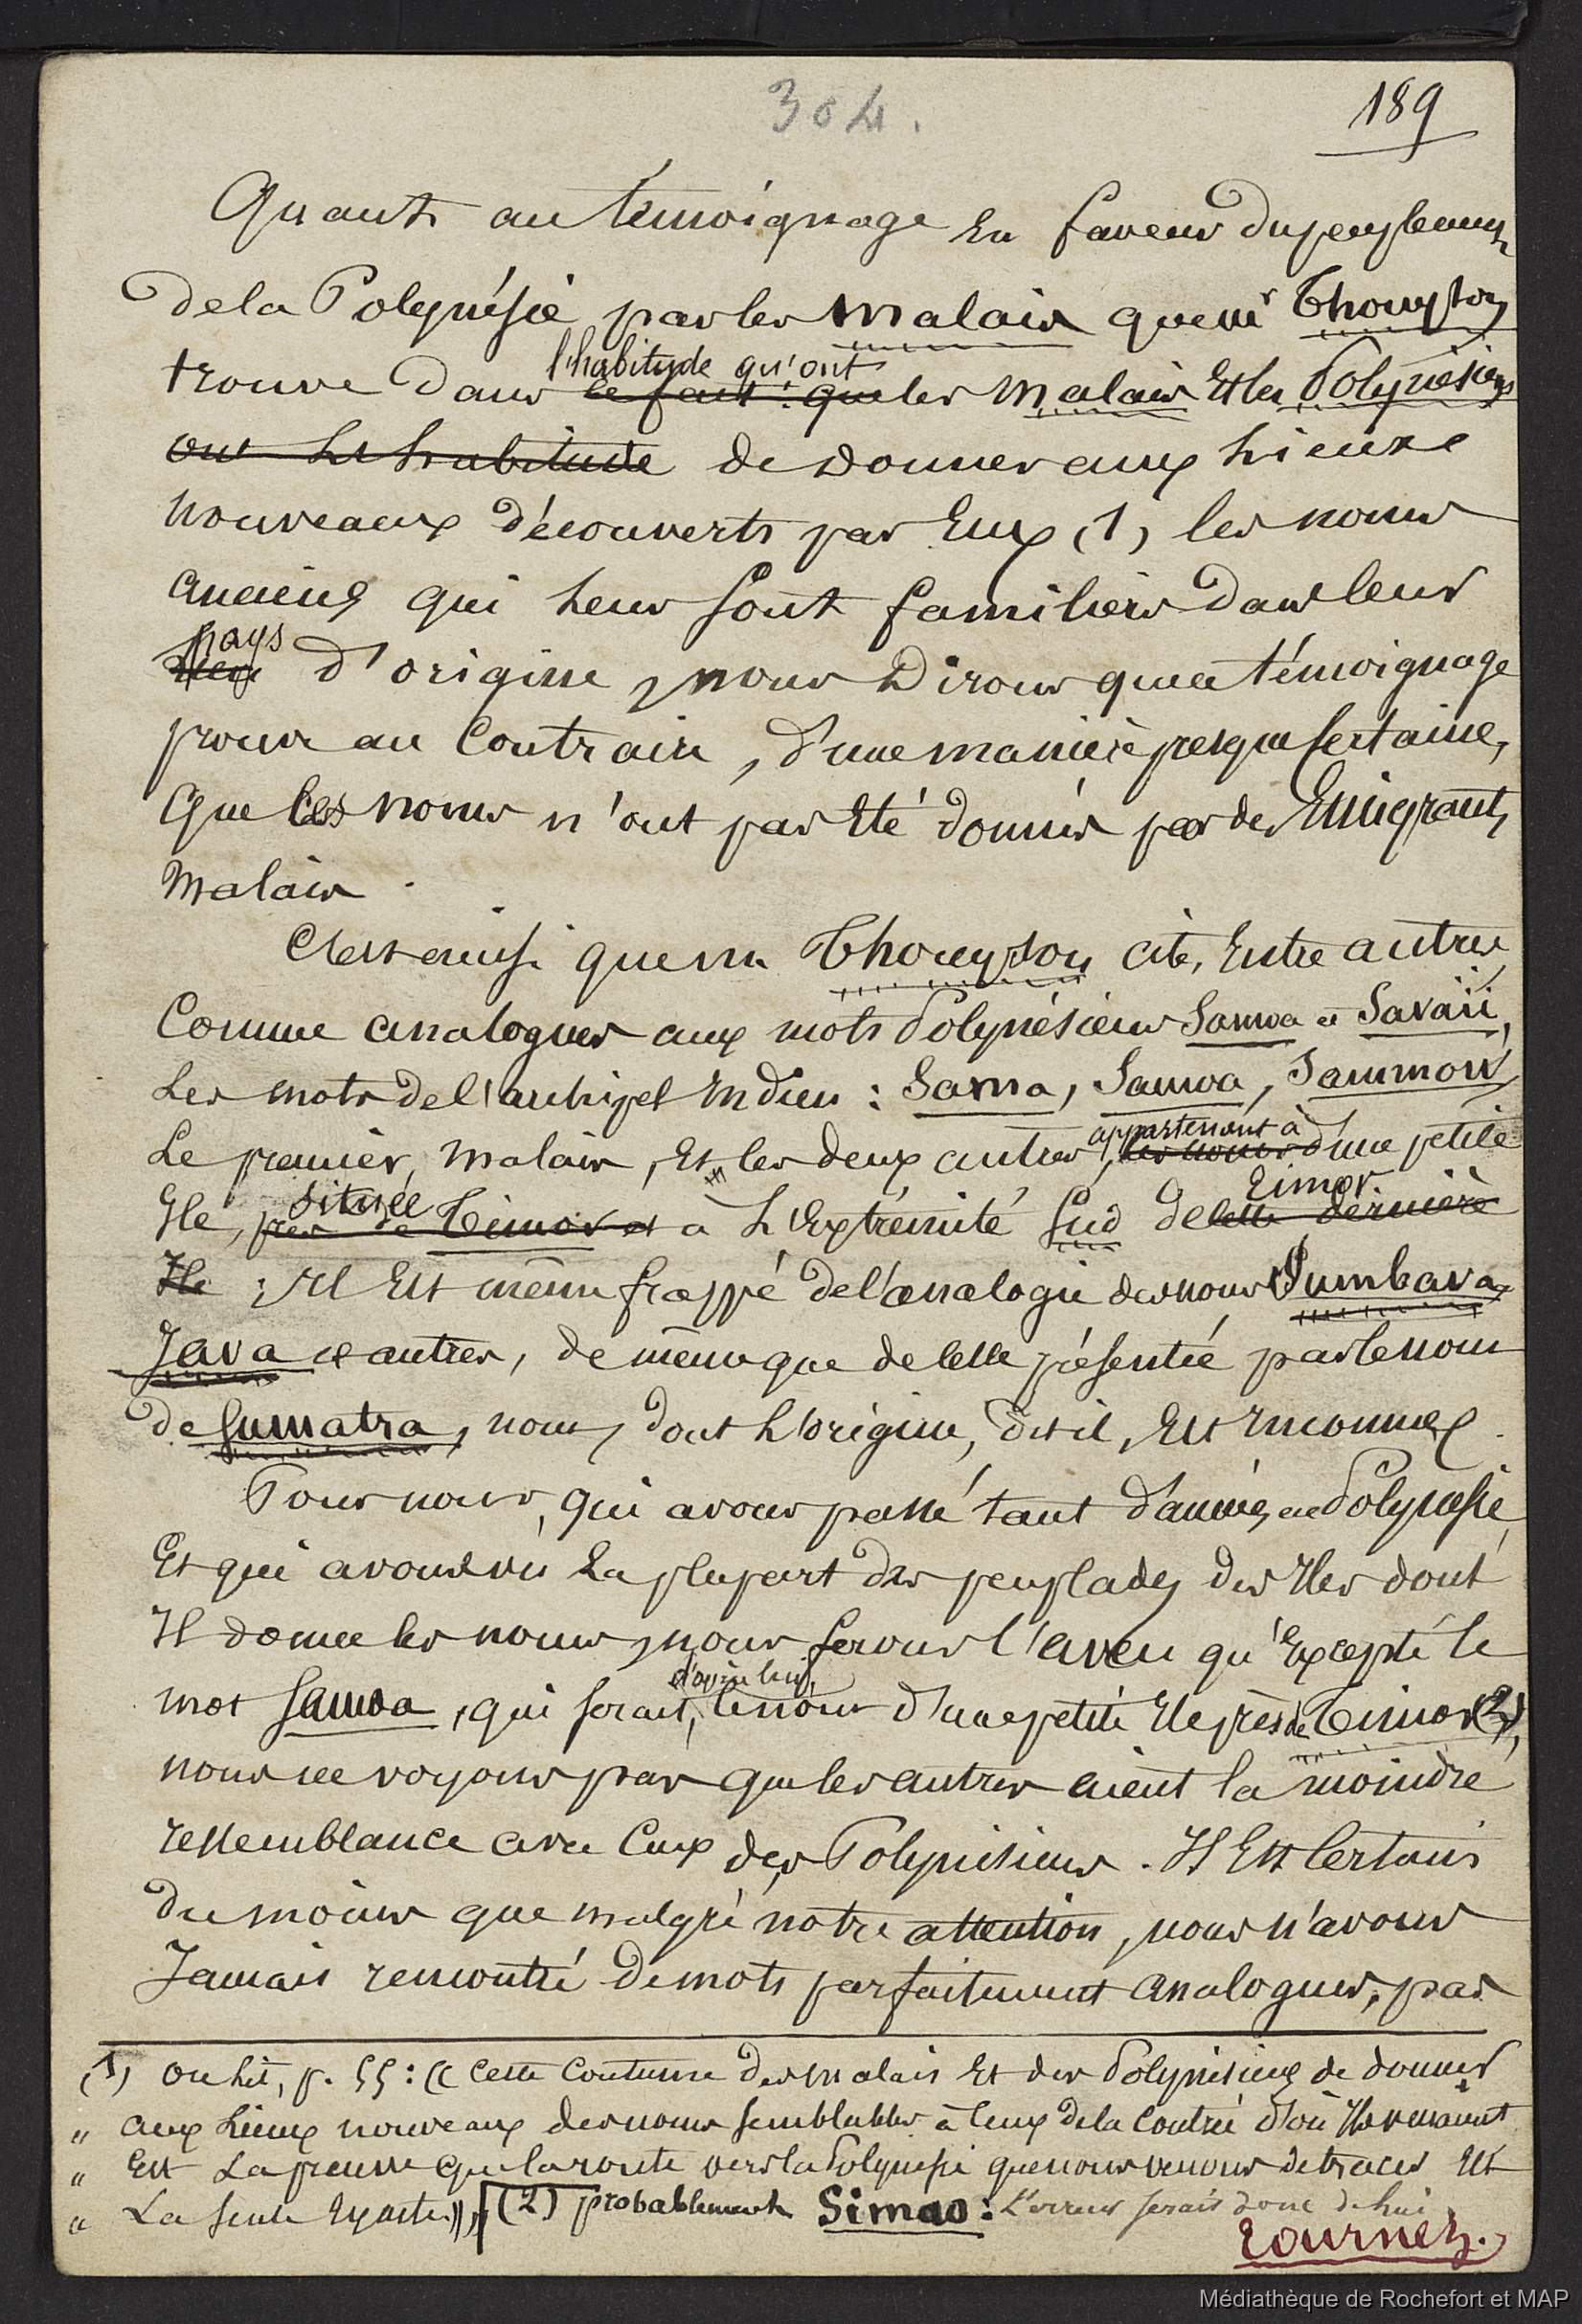 304.
189
Quant au témoignage En faveur du peuplement
de la Polynésie par les Malais que Mr Thompson
trouve dans l'habitude qu'ont le fait que les Malais Et les Polynésiens
ont L'habitude de donner aux Lieux
nouveaux découverts par Eux (1) les noms
anciens qui Leur sont familiers dans leur
pays d'origine, nous Dirons que ce témoignage
prouve au Contraire, d'une manière presque certaine,
Que Ces noms n'ont pas Eté donnés par des Emigrants
Malais.
C'est ainsi que M. Thompson cite, Entre autres
Comme analogues aux mots Polynésiens Samoa et Savaii,
Les mots de l'archipel Indien : Sama, Samoa, Sammow
Le premier, Malais, Et les deux autres, appartenant à les noms d'une petite
Ile, située près de Timor et à L'Extrémité Sud de Timor cette dernière
Ile ; Il Est même frappé de l'analogie des noms Sumbava,
Java et autres, de même que de celle présentée par le nom
de Sumatra, noms dont L'origine, dit-il, Est Inconnue.
Pour nous, qui avons passé tant d'années en Polynésie,
Et qui avons vu La plupart des peuplades des Iles dont
Il donne les noms, nous ferons l'aveu qu'Excepté le
mot Samoa, qui serait, d'après lui, le nom d'une petite Ile près de Timor (2),
nous ne voyons pas que les autres aient la moindre
ressemblance avec Ceux des Polynésiens. Il Est Certain
du moins que malgré notre attention, nous n'avons
Jamais rencontré de mots parfaitement analogues, par
(1) On lit, p. 55 : « Cette Coutume des Malais Et des Polynésiens de donner
" aux Lieux nouveaux des noms semblables à Ceux de la Contrée d'où Ils venaient
" Est La preuve que la route vers la Polynésie que nous venons de tracer Est
" La seule Exacte. » (2) probablement Simao : L'erreur serait donc de lui
tournez.
Médiathèque de Rochefort et MAP